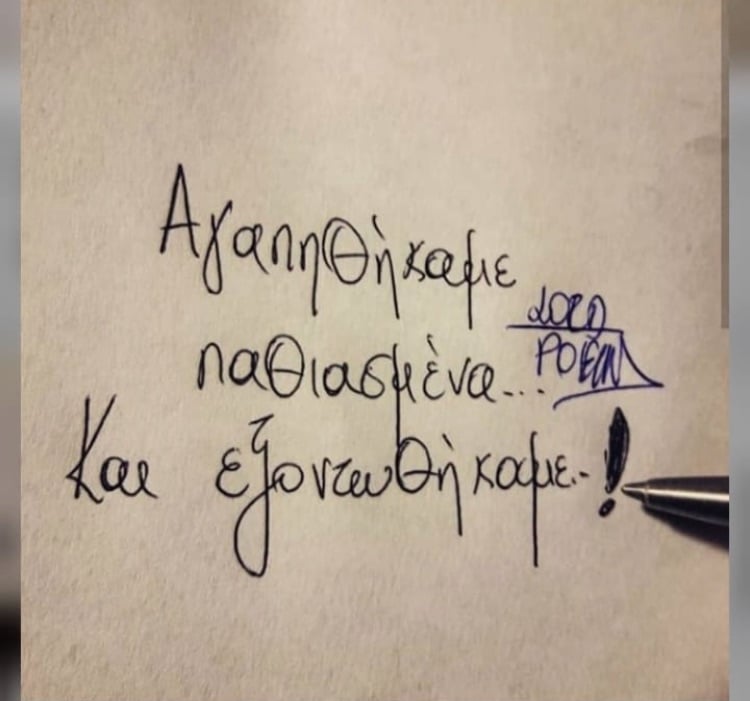 Αγαπηθήκαμε
παθιασμένα...
Και εξοντωθήκαμε.-!
LORD
POEM